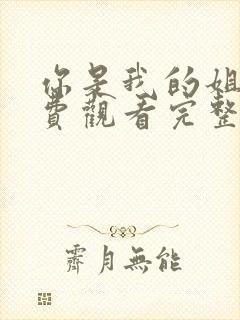 你是我的姐
費觀看完整
霽月無能